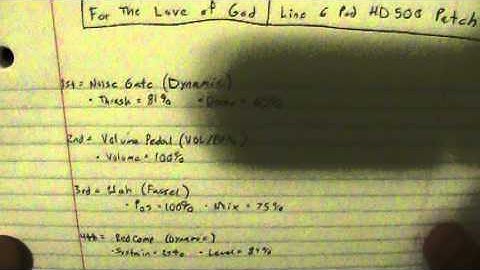 For The Love of God | Line 6 Pod HD500 Patch
1st = Noise Gate (Dynamic)
• Thresh = 81%
2nd = Volume Pedal
• Volume = 100%
3rd = Wah (Fassel)
• Pos = 100% • Mix = 75%
4th = Red Comp (Dynamic)
• Sustain = • Level = 84%